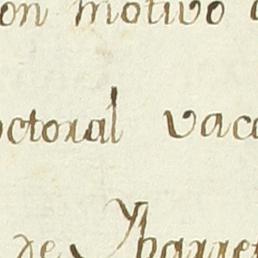 on motivo
octoral vaca
de Ybarret